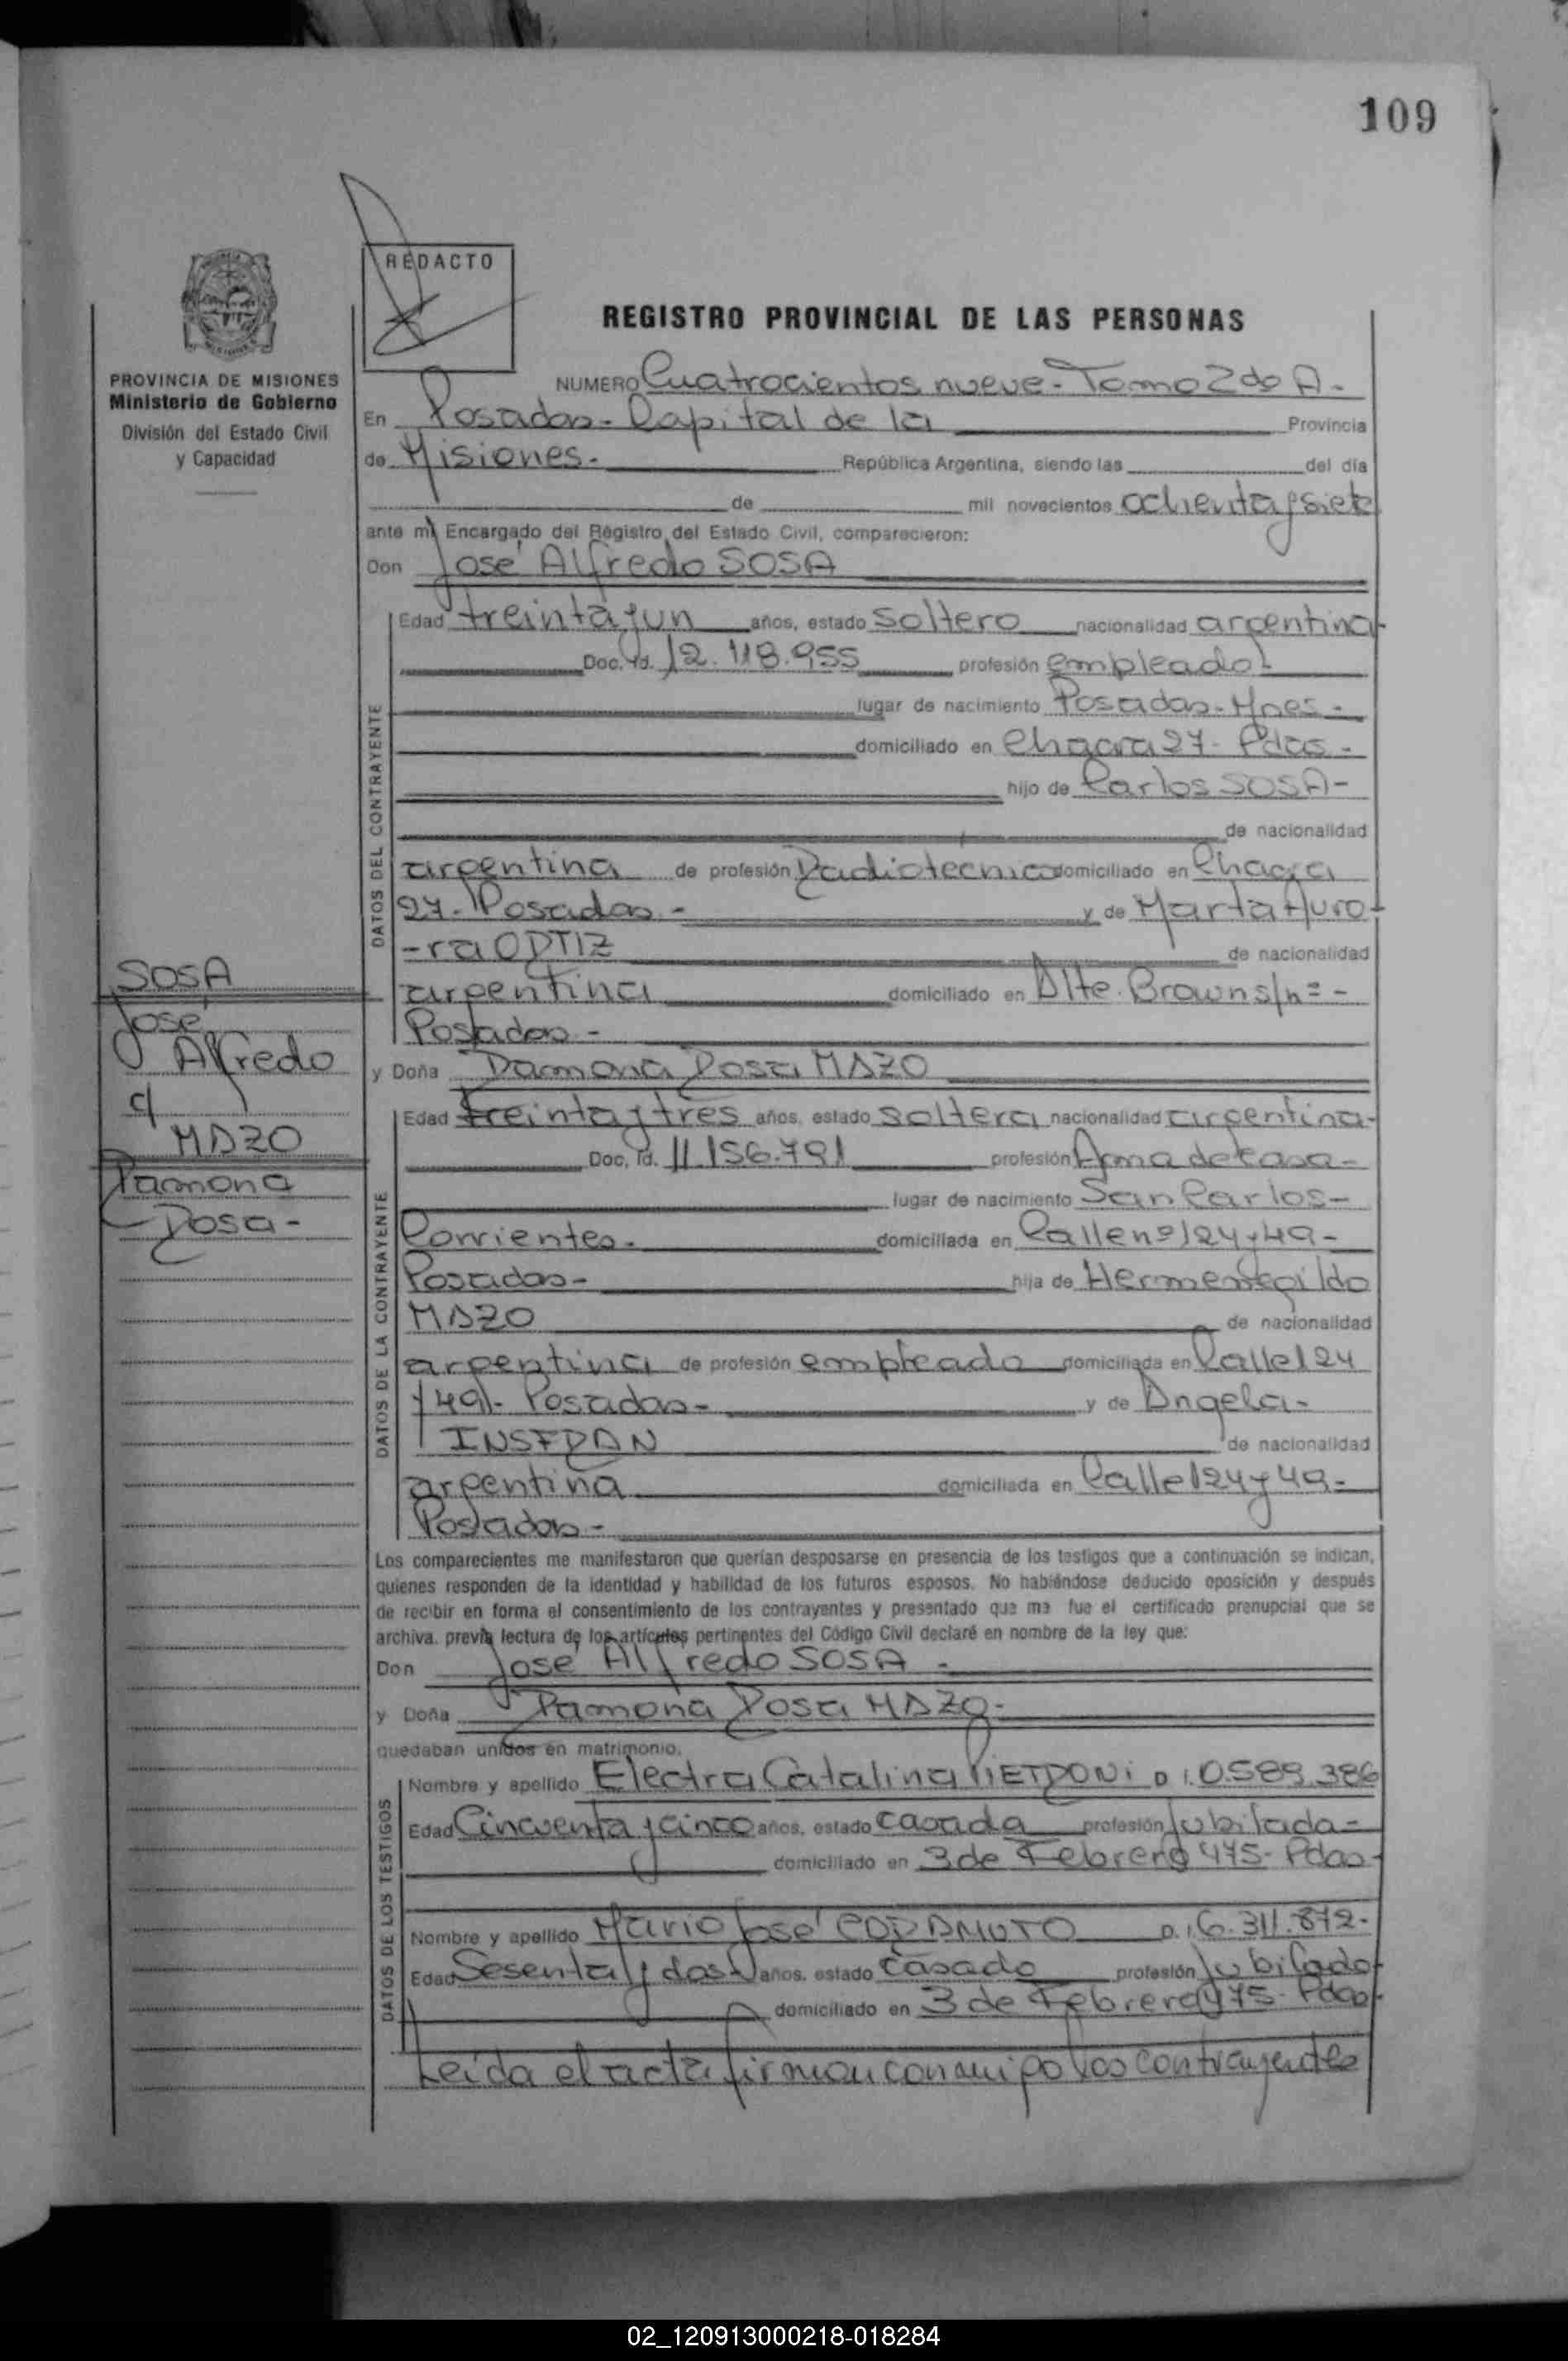 109
REDACTO
REGISTRO PROVINCIAL DE LAS PERSONAS
PROVINCIA DE MISIONES
Ministerio de Gobierno
División del Estado Civil
y Capacidad
NUMERO Cuatrocientos nueve - Tomo 2do A -
En Posadas - Capital de la Provincia
de Misiones - República Argentina, siendo las del día
de mil novecientos ochenta y siete
ante mí Encargado del Registro del Estado Civil, comparecieron:
Don José Alfredo SOSA
DATOS DEL CONTRAYENTE
Edad treinta y un años, estado soltero nacionalidad argentina
Doc. Id. 12.118.955 profesión empleado -
lugar de nacimiento Posadas - Mnes -
domiciliado en Chacra 27 - Pdas -
hijo de Carlos SOSA -
de nacionalidad
argentina de profesión Radiotecnico domiciliado en Chacra
27 - Posadas - y de Marta Auro-
-ra ORTIZ de nacionalidad
argentina domiciliado en Alte. Brown s/nº -
Posadas -
SOSA
José
Alfredo
c/
MAZO
Ramona
Rosa -
y Doña Ramona Rosa MAZO
DATOS DE LA CONTRAYENTE
Edad treinta y tres años, estado soltera nacionalidad argentina -
Doc. Id. 11.156.791 profesión Ama de casa -
lugar de nacimiento San Carlos -
Corrientes - domiciliada en Calle nº 124 y 49 -
Posadas - hija de Hermenegildo
MAZO de nacionalidad
argentina de profesión empleado domiciliada en Calle 124
y 49 - Posadas - y de Angela -
INSFRAN de nacionalidad
argentina domiciliada en Calle 124 y 49 -
Posadas -
Los comparecientes me manifestaron que querían desposarse en presencia de los testigos que a continuación se indican,
quienes responden de la identidad y habilidad de los futuros esposos. No habiéndose deducido oposición y después
de recibir en forma el consentimiento de los contrayentes y presentado que me fue el certificado prenupcial que se
archiva, previa lectura de los artículos pertinentes del Código Civil declaré en nombre de la ley que:
Don José Alfredo SOSA -
y Doña Ramona Rosa MAZO -
quedaban unidos en matrimonio.
DATOS DE LOS TESTIGOS
Nombre y apellido Electra Catalina PIETRONI D.I. 0.589.386
Edad Cincuenta y cinco años, estado casada profesión Jubilada -
domiciliado en 3 de Febrero 475 - Pdas -
Nombre y apellido Mario José CARAMUTO D.I. 6.311.872 -
Edad Sesenta y dos años, estado casado profesión Jubilado
domiciliado en 3 de Febrero 475 - Pdas -
Leída el acta firman conmigo los contrayentes
02_120913000218-018284